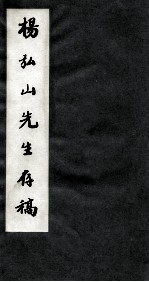 楊弘山先生存稿